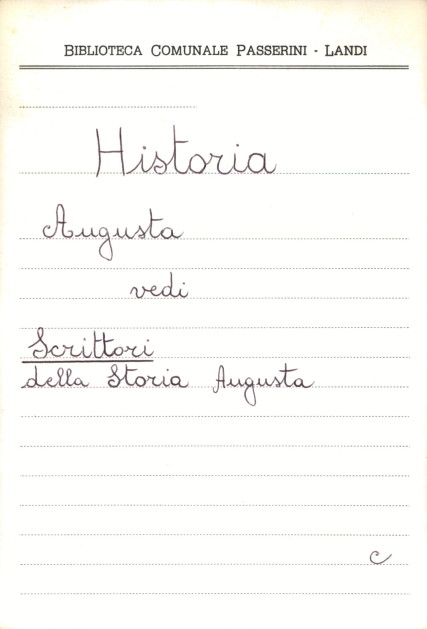 BIBLIOTECA COMUNALE PASSERINI - LANDI
Historia
Augusta
vedi
Scrittori
della Storia Augusta
c